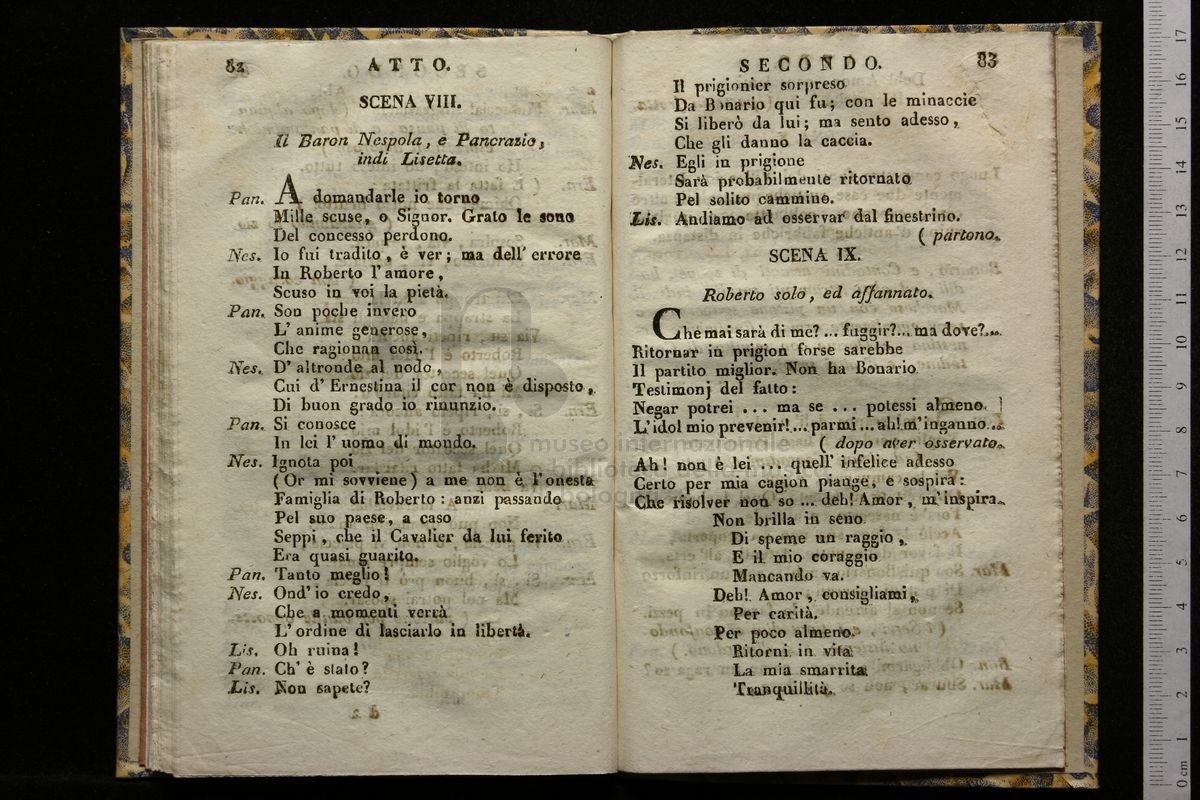 82
ATTO.
SCENA VIII.
Il Baron Nespola, e Pancrazio,
indi Lisetta.
Pan. A domandarle io torno
Mille scuse, o Signor. Grato le sono
Del concesso perdono.
Nes. Io fui tradito, è ver; ma dell' errore
In Roberto l' amore,
Scuso in voi la pietà.
Pan. Son poche invero
L' anime generose,
Che ragionan così.
Nes. D' altronde al nodo,
Cui d' Ernestina il cor non è disposto,
Di buon grado io rinunzio.
Pan. Si conosce
In lei l' uomo di mondo.
Nes. Ignota poi
(Or mi sovviene) a me non è l' onesta
Famiglia di Roberto: anzi passando
Pel suo paese, a caso
Seppi, che il Cavalier da lui ferito
Era quasi guarito.
Pan. Tanto meglio!
Nes. Ond' io credo,
Che a momenti verrà
L' ordine di lasciarlo in libertà.
Lis. Oh ruina!
Pan. Ch' è stato?
Lis. Non sapete?
SECONDO.
83
Il prigionier sorpreso
Da Bonario qui fu; con le minaccie
Si liberò da lui; ma sento adesso,
Che gli danno la caccia.
Nes. Egli in prigione
Sarà probabilmente ritornato
Pel solito cammino.
Lis. Andiamo ad osservar dal finestrino.
( partono.
SCENA IX.
Roberto solo, ed affannato.
Che mai sarà di me? ... fuggir?... ma dove?...
Ritornar in prigion forse sarebbe
Il partito miglior. Non ha Bonario
Testimonj del fatto:
Negar potrei ... ma se ... potessi almeno
L' idol mio prevenir!... parmi ... ah! m'inganno...
( dopo aver osservato.
Ah! non è lei ... quell' infelice adesso
Certo per mia cagion piange, e sospira:
Che risolver non so ... deh! Amor, m' inspira.
Non brilla in seno
Di speme un raggio,
E il mio coraggio
Mancando va.
Deh! Amor, consigliami,
Per carità,
Per poco almeno
Ritorni in vita
La mia smarrita
Tranquillità.
museo internazionale
17
16
15
14
13
12
11
10
9
8
7
6
5
4
3
2
1
0 cm